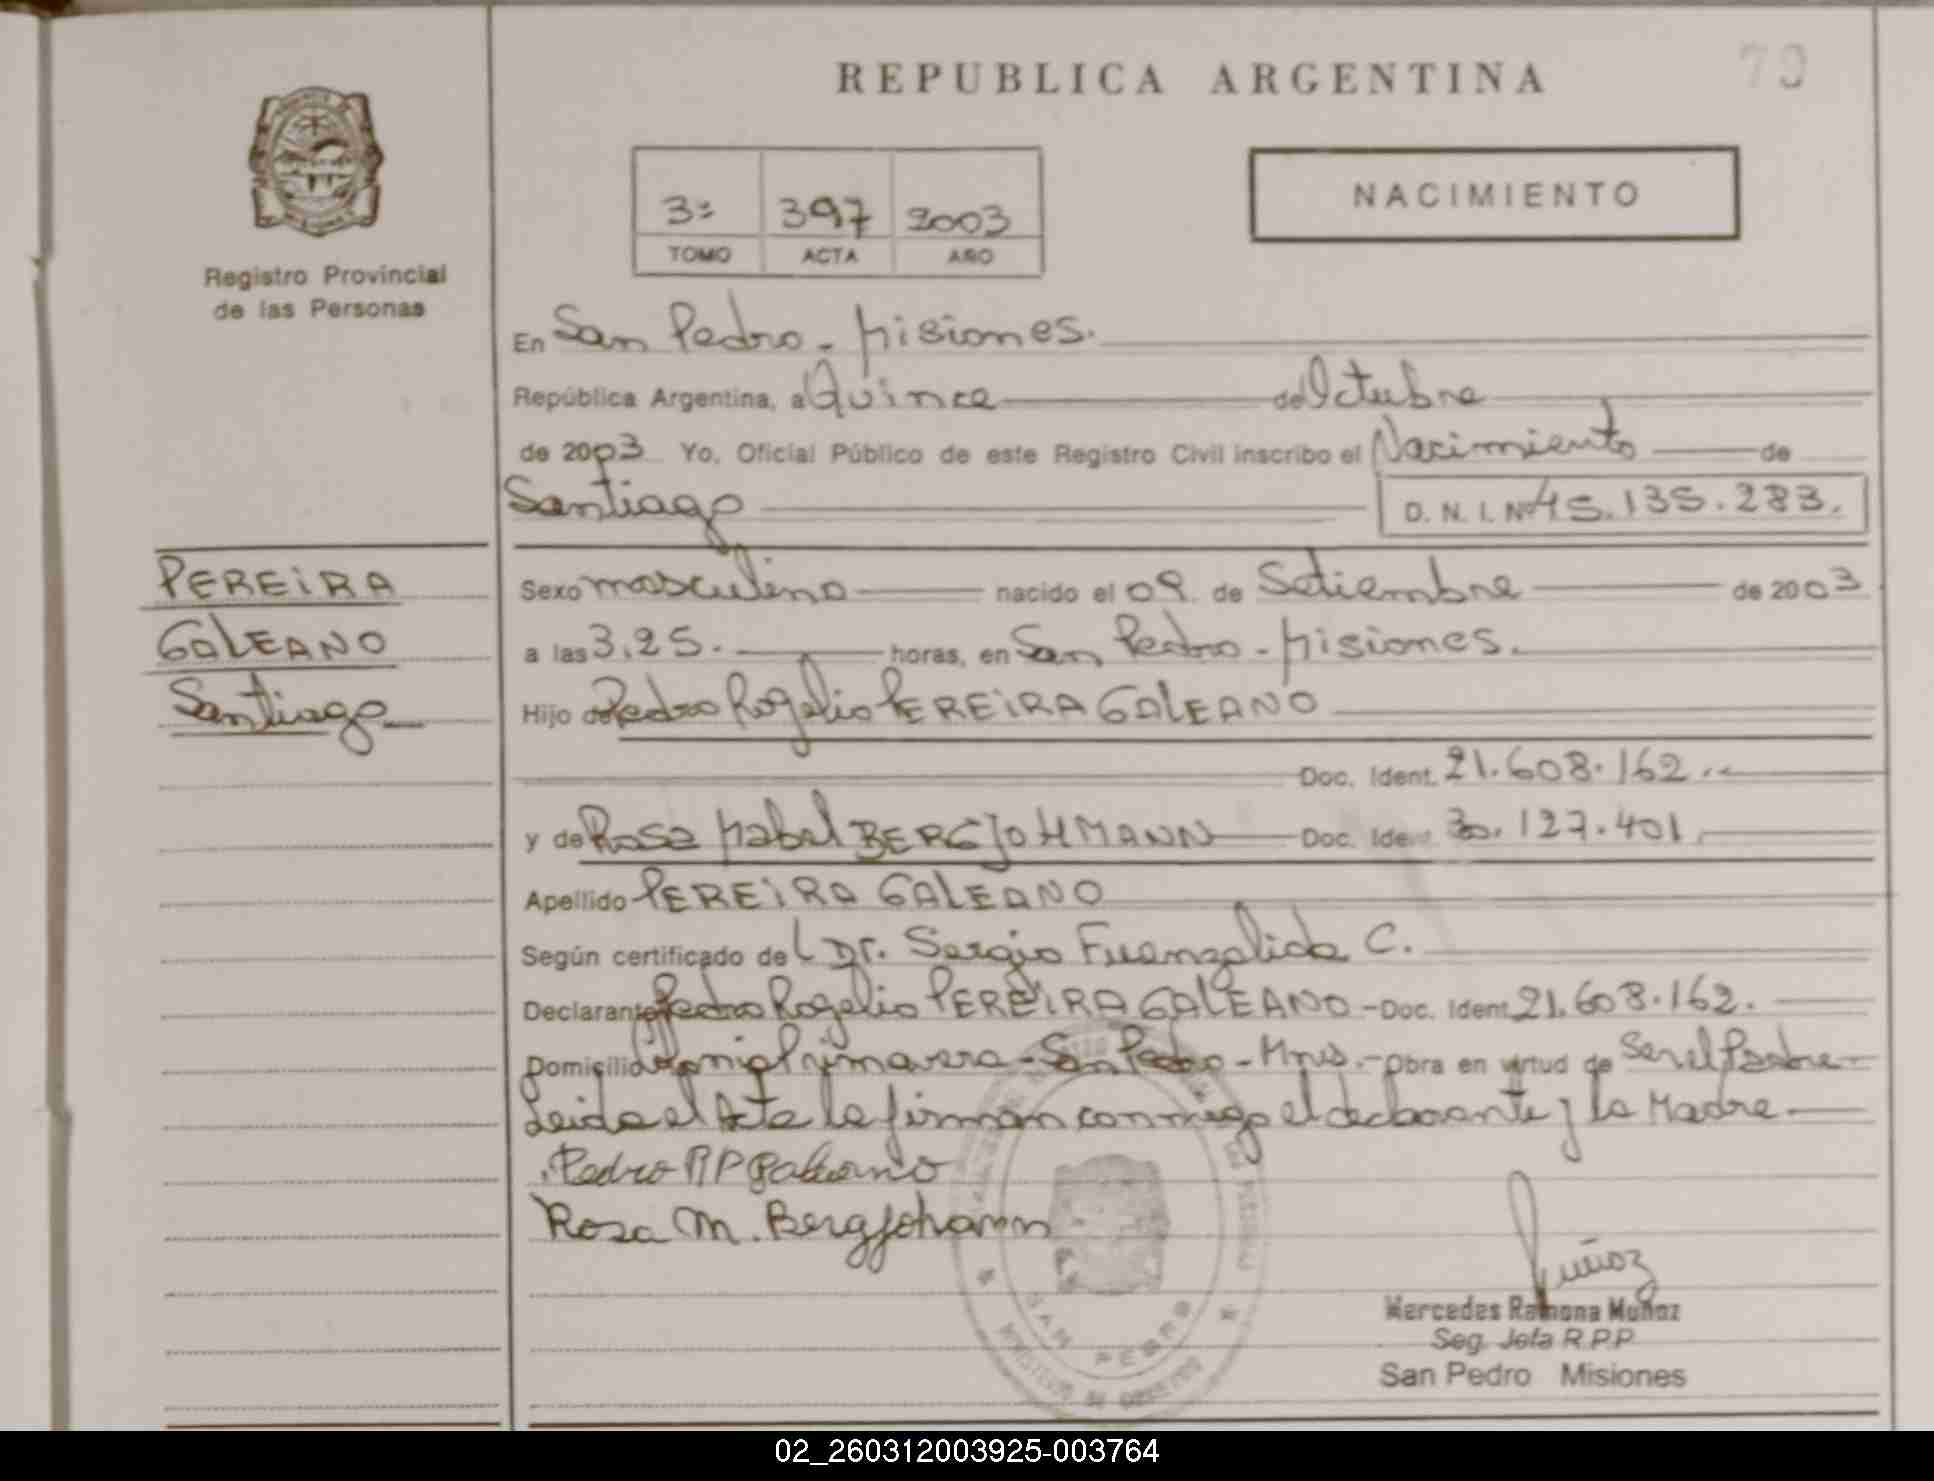 REPUBLICA ARGENTINA
79
3º 397 2003
TOMO ACTA AÑO
NACIMIENTO
Registro Provincial
de las Personas
En San Pedro - Misiones.
República Argentina, a Quince de Octubre
de 2003 Yo, Oficial Público de este Registro Civil inscribo el Nacimiento de
Santiago D. N. I. Nº 45.135.283.
PEREIRA
GALEANO
Santiago
Sexo masculino nacido el 09 de Setiembre de 2003
a las 3,25. horas, en San Pedro - Misiones.
Hijo de Pedro Rogelio PEREIRA GALEANO
Doc. Ident. 21.608.162.-
y de Rosa Mabel BERGJOHMANN Doc. Ident. 30.127.401.
Apellido PEREIRA GALEANO
Según certificado del Dr. Sergio Fuenzalida C.
Declarante Pedro Rogelio PEREIRA GALEANO - Doc. Ident. 21.608.162.
Domicilio Colonia Primavera - San Pedro - Mnes. - Obra en virtud de Ser el Padre -
Leida el Acta la firman conmigo el declarante y la Madre.
Pedro R P Galeano
Rosa M. Bergjohann
SAN PEDRO
MISIONES
Muñoz
Mercedes Ramona Muñoz
Seg. Jefa R.P.P
San Pedro Misiones
02_260312003925-003764